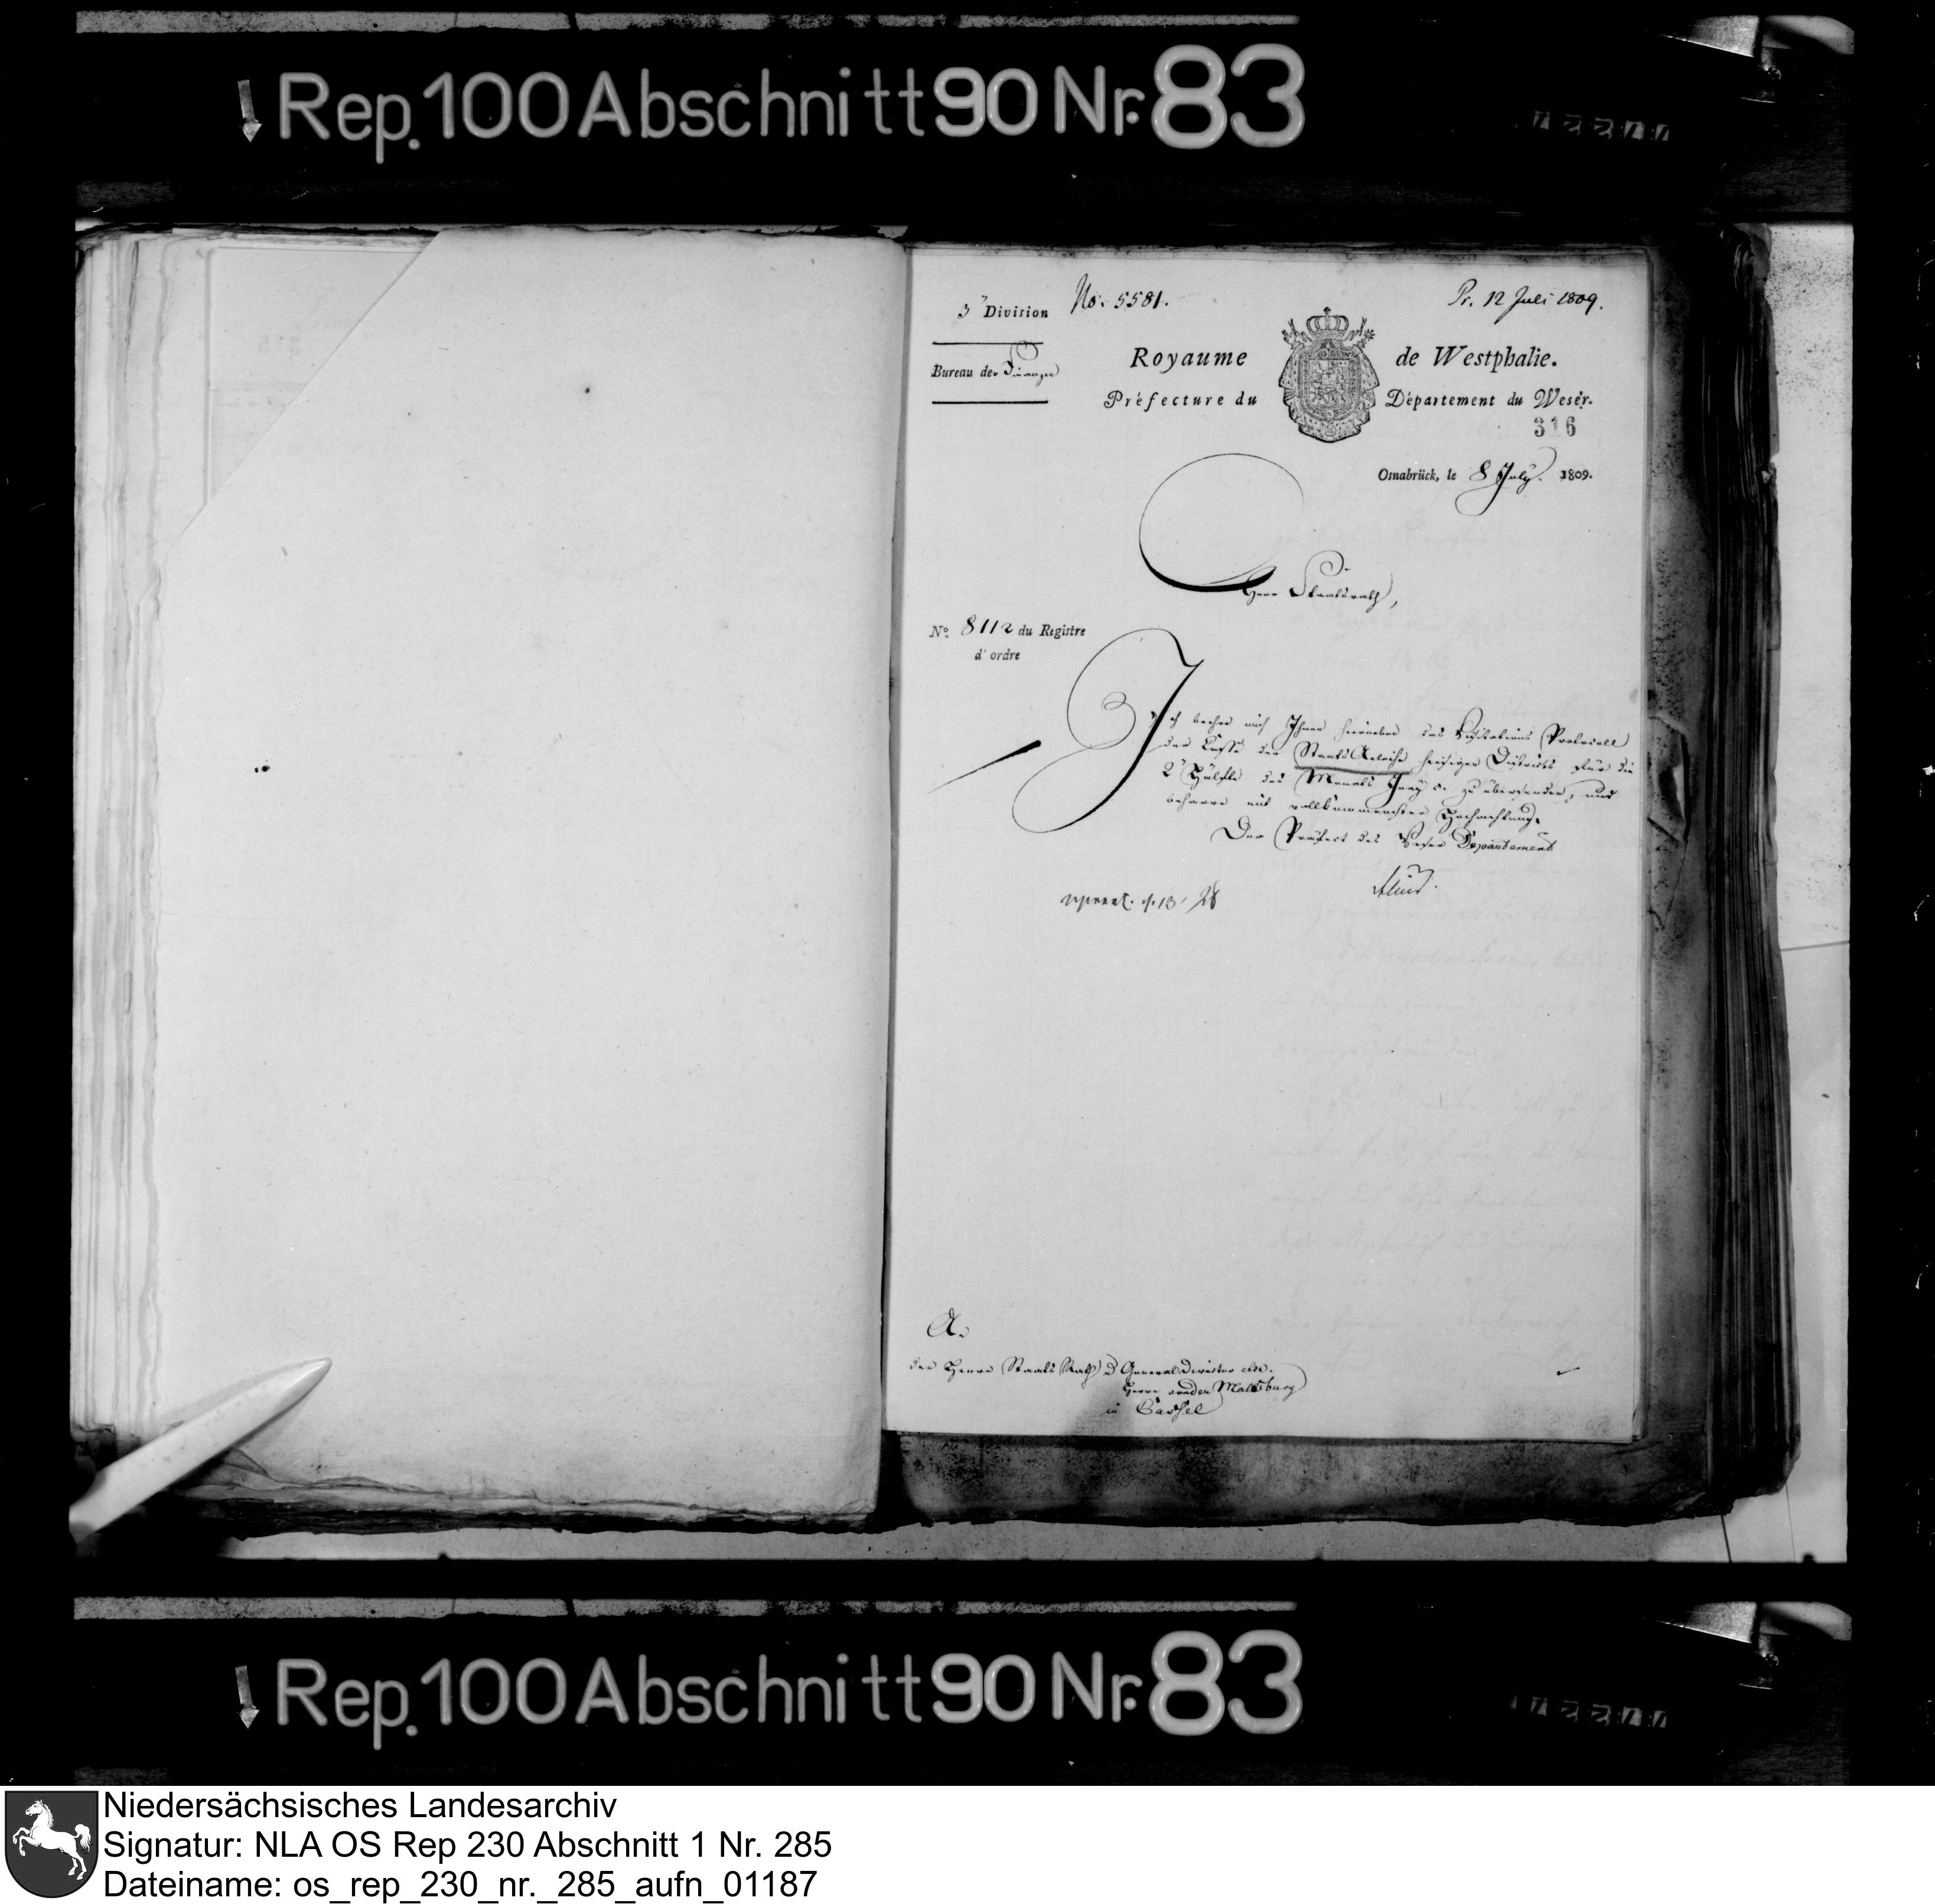 Rep. 100 Abschnitt 90 Nr. 83
3" Division
No. 5581.
Pr. 12 Juli 1809.
Bureau der Finanzen
Royaume de Westphalie.
Préfecture du Département du Weser.
316
Osnabrück, le 8 July. 1809.
Herr Staatsrath,
No. 8112 du Registre
d'ordre
Ich beehre mich Ihnen hierneben das Visitations Protocoll
der Casse der Staats Anleihe hiesigen Districts für die
2te Hälfte des Monats Juny c. zu übersenden, und
beharre mit vollkommenster Hochachtung.
Der Präfect des Weser Departement
An
den Herrn Staats Rath u General Director etc.
Herrn von der Malsburg
in Cassel
Rep. 100 Abschnitt 90 Nr. 83
Niedersächsisches Landesarchiv
Signatur: NLA OS Rep 230 Abschnitt 1 Nr. 285
Dateiname: os_rep_230_nr._285_aufn_01187